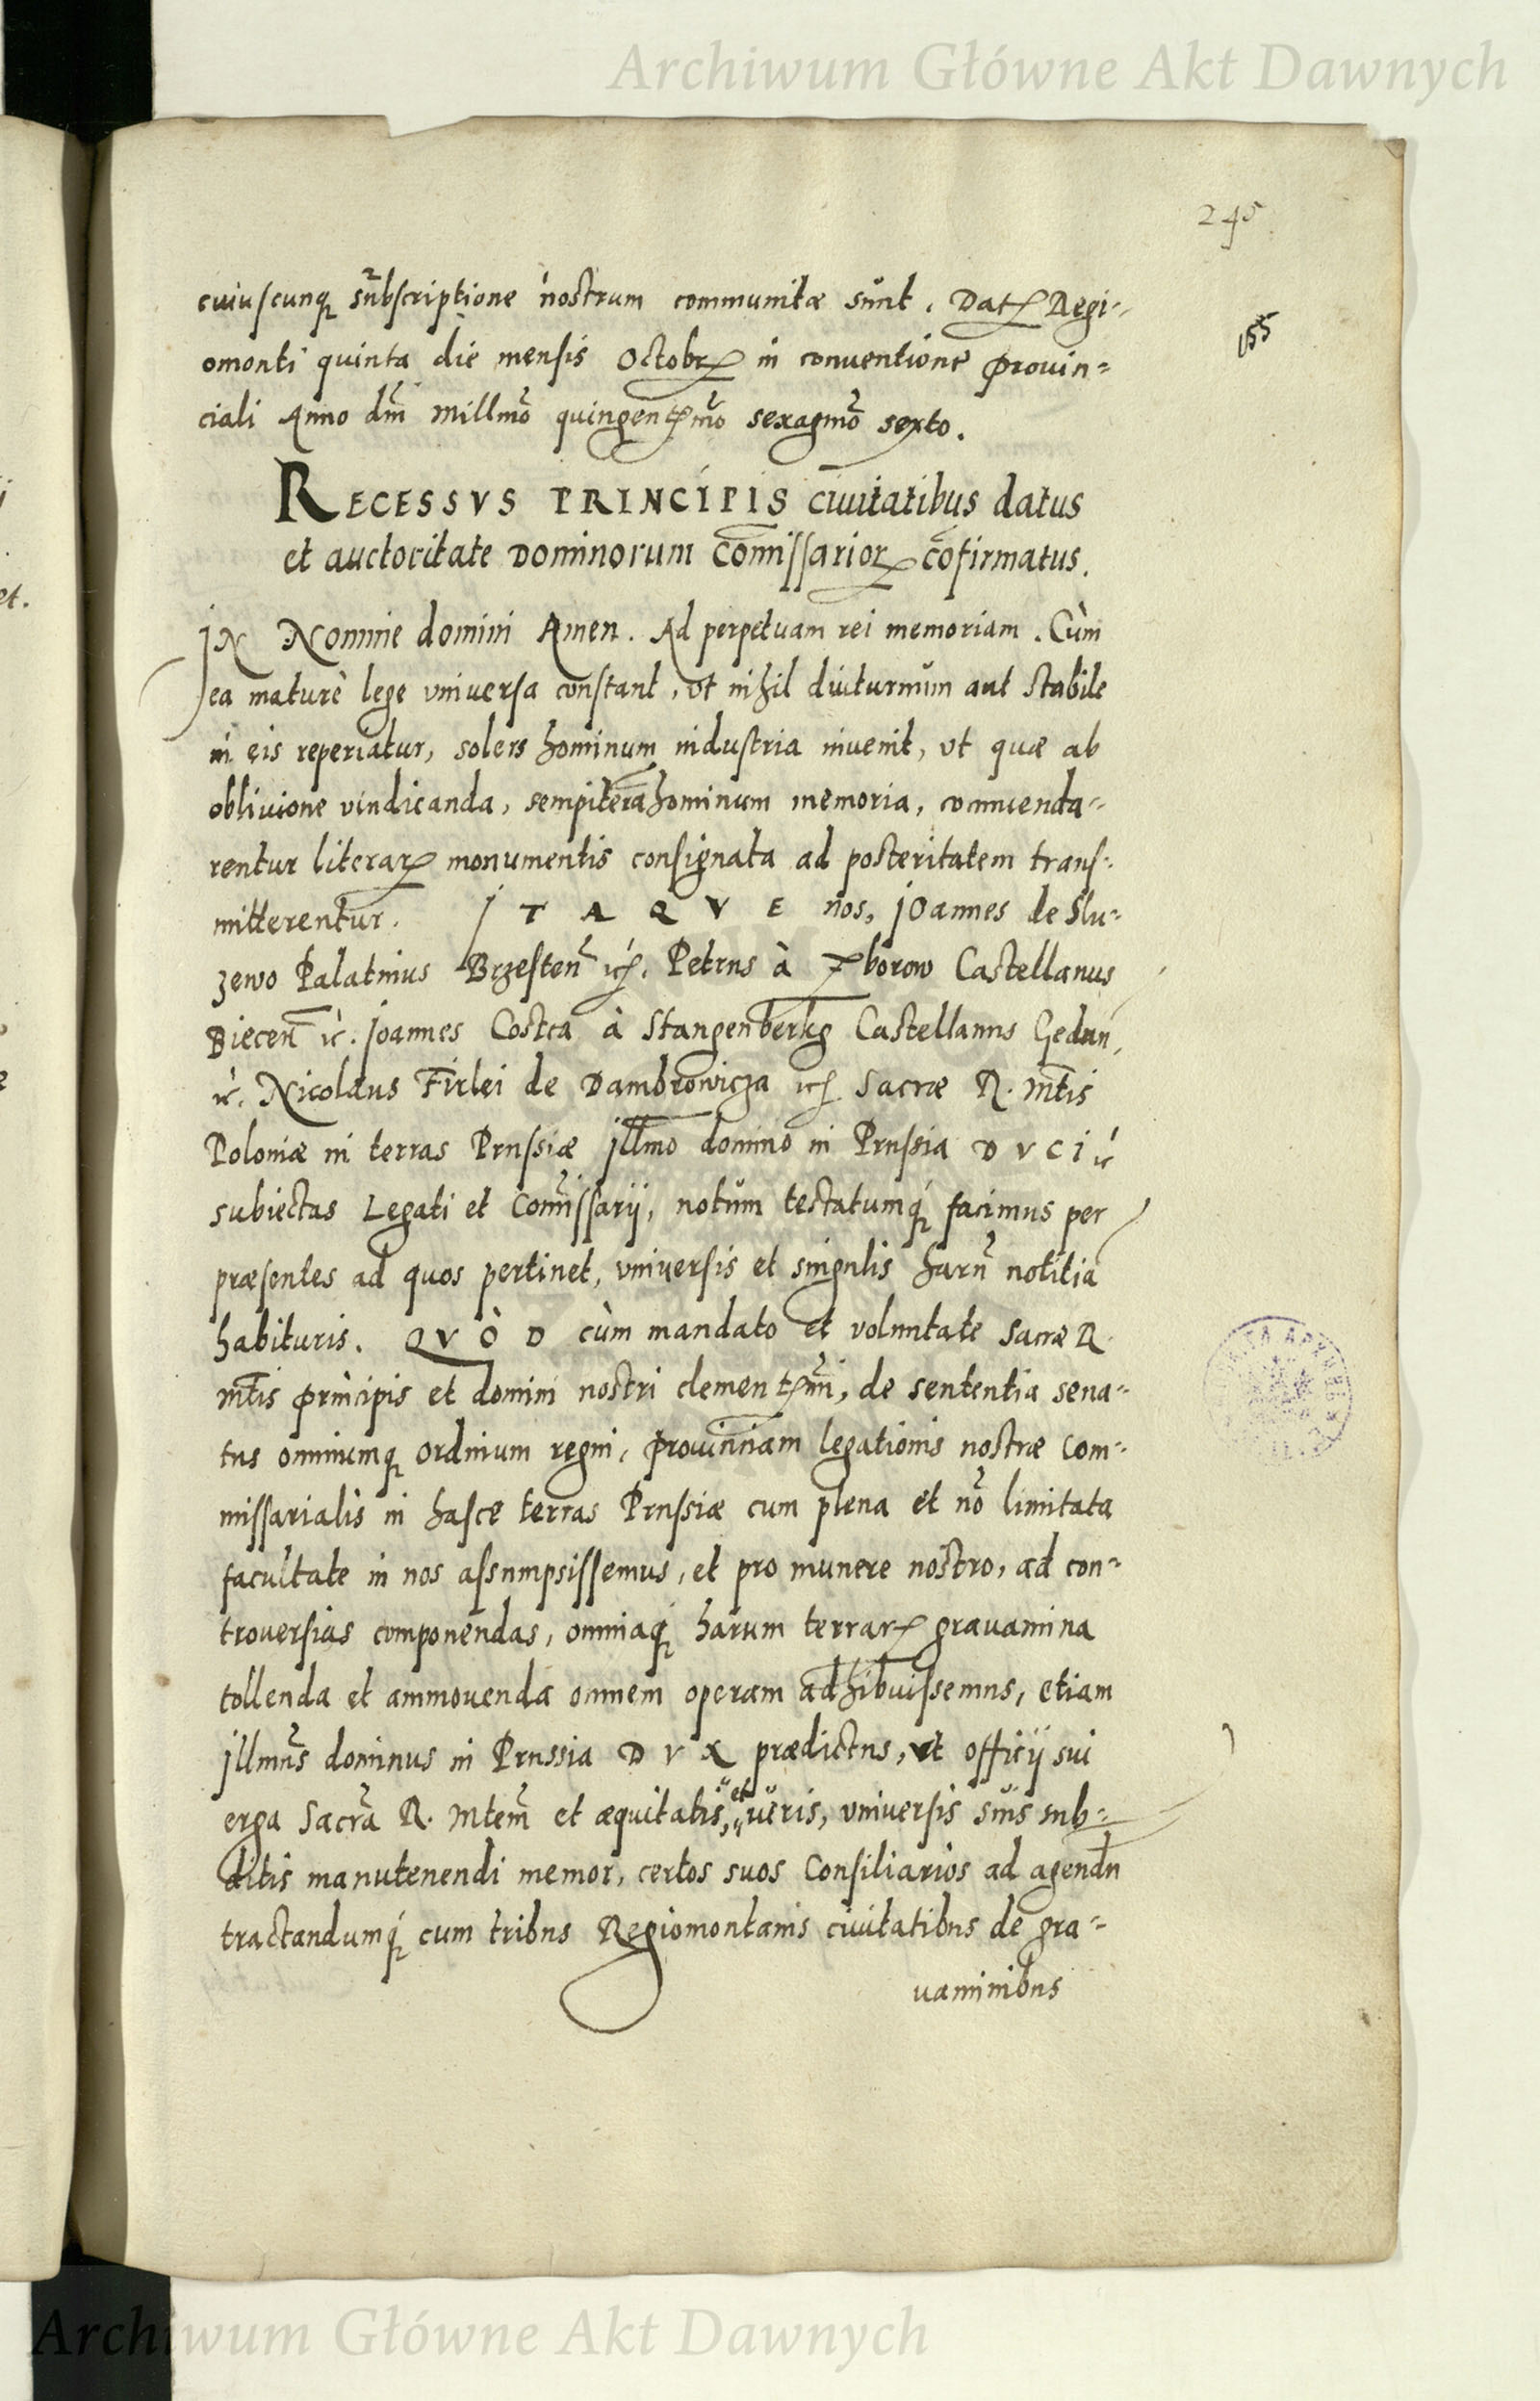 Archiwum Główne Akt Dawnych
245
cuiuscunq subscriptione nostrum communitæ sunt. Dat Regi-
155
omonti quinta die mensis Octobr in conuentione prouin-
ciali Anno dm̃ millmõ quingentmõ sexagmõ sexto.
RECESSVS PRINCIPIS ciuitatibus datus
et auctoritate Dominorum Com̃issarior cõfirmatus.
IN Nomine domini Amen. Ad perpetuam rei memoriam. Cùm
ea maturè lege vniuersa constant, vt nihil diuturnum aut stabile
in eis reperiatur, solers hominum industria inuenit, vt quæ ab
obliuione vindicanda, sempiterna hominum memoria, commenda-
rentur literar monumentis consignata ad posteritatem trans-
mitterentur. ITAQVE nos, Joannes de Slu-
zewo Palatinus Brzesten̄ ꝛc. Petrus à Zborow Castellanus
Biecen̄ ꝛc. Joannes Costca à Stangenberkg Castellanus Gedan,
ꝛc. Nicolaus Firlei de Dambrowicza ꝛc Sacræ R. Mtis
Poloniæ in terras Prussiæ Jllmo domino in Prussia DVCI ꝛc
subiectas Legati et Com̃issarij, notum testatumq́ facimus per
præsentes ad quos pertinet, vniuersis et singulis harũ notitiã
habituris. QVÒD cùm mandato et voluntate Sacræ R.
Mtis principis et domini nostri clementmi, de sententia sena-
tus omniumq ordinum regni, prouinciam legationis nostræ com-
missarialis in hasce terras Prussiæ cum plena et nõ limitata
facultate in nos assumpsissemus, et pro munere nostro, ad con-
trouersias componendas, omniaq́ harum terrar grauamina
tollenda et ammouenda omnem operam adhibuissemus, etiam
Jllmus dominus in Prussia DVX prædictus, vt officij sui
erga Sacrã R. Mtem̃ et æquitatis, et iuris, vniuersis suis sub-
ditis manutenendi memor, certos suos Consiliarios ad agendũ
tractandumq́ cum tribus Regiomontanis ciuitatibus de gra-
uaminibus
Archiwum Główne Akt Dawnych